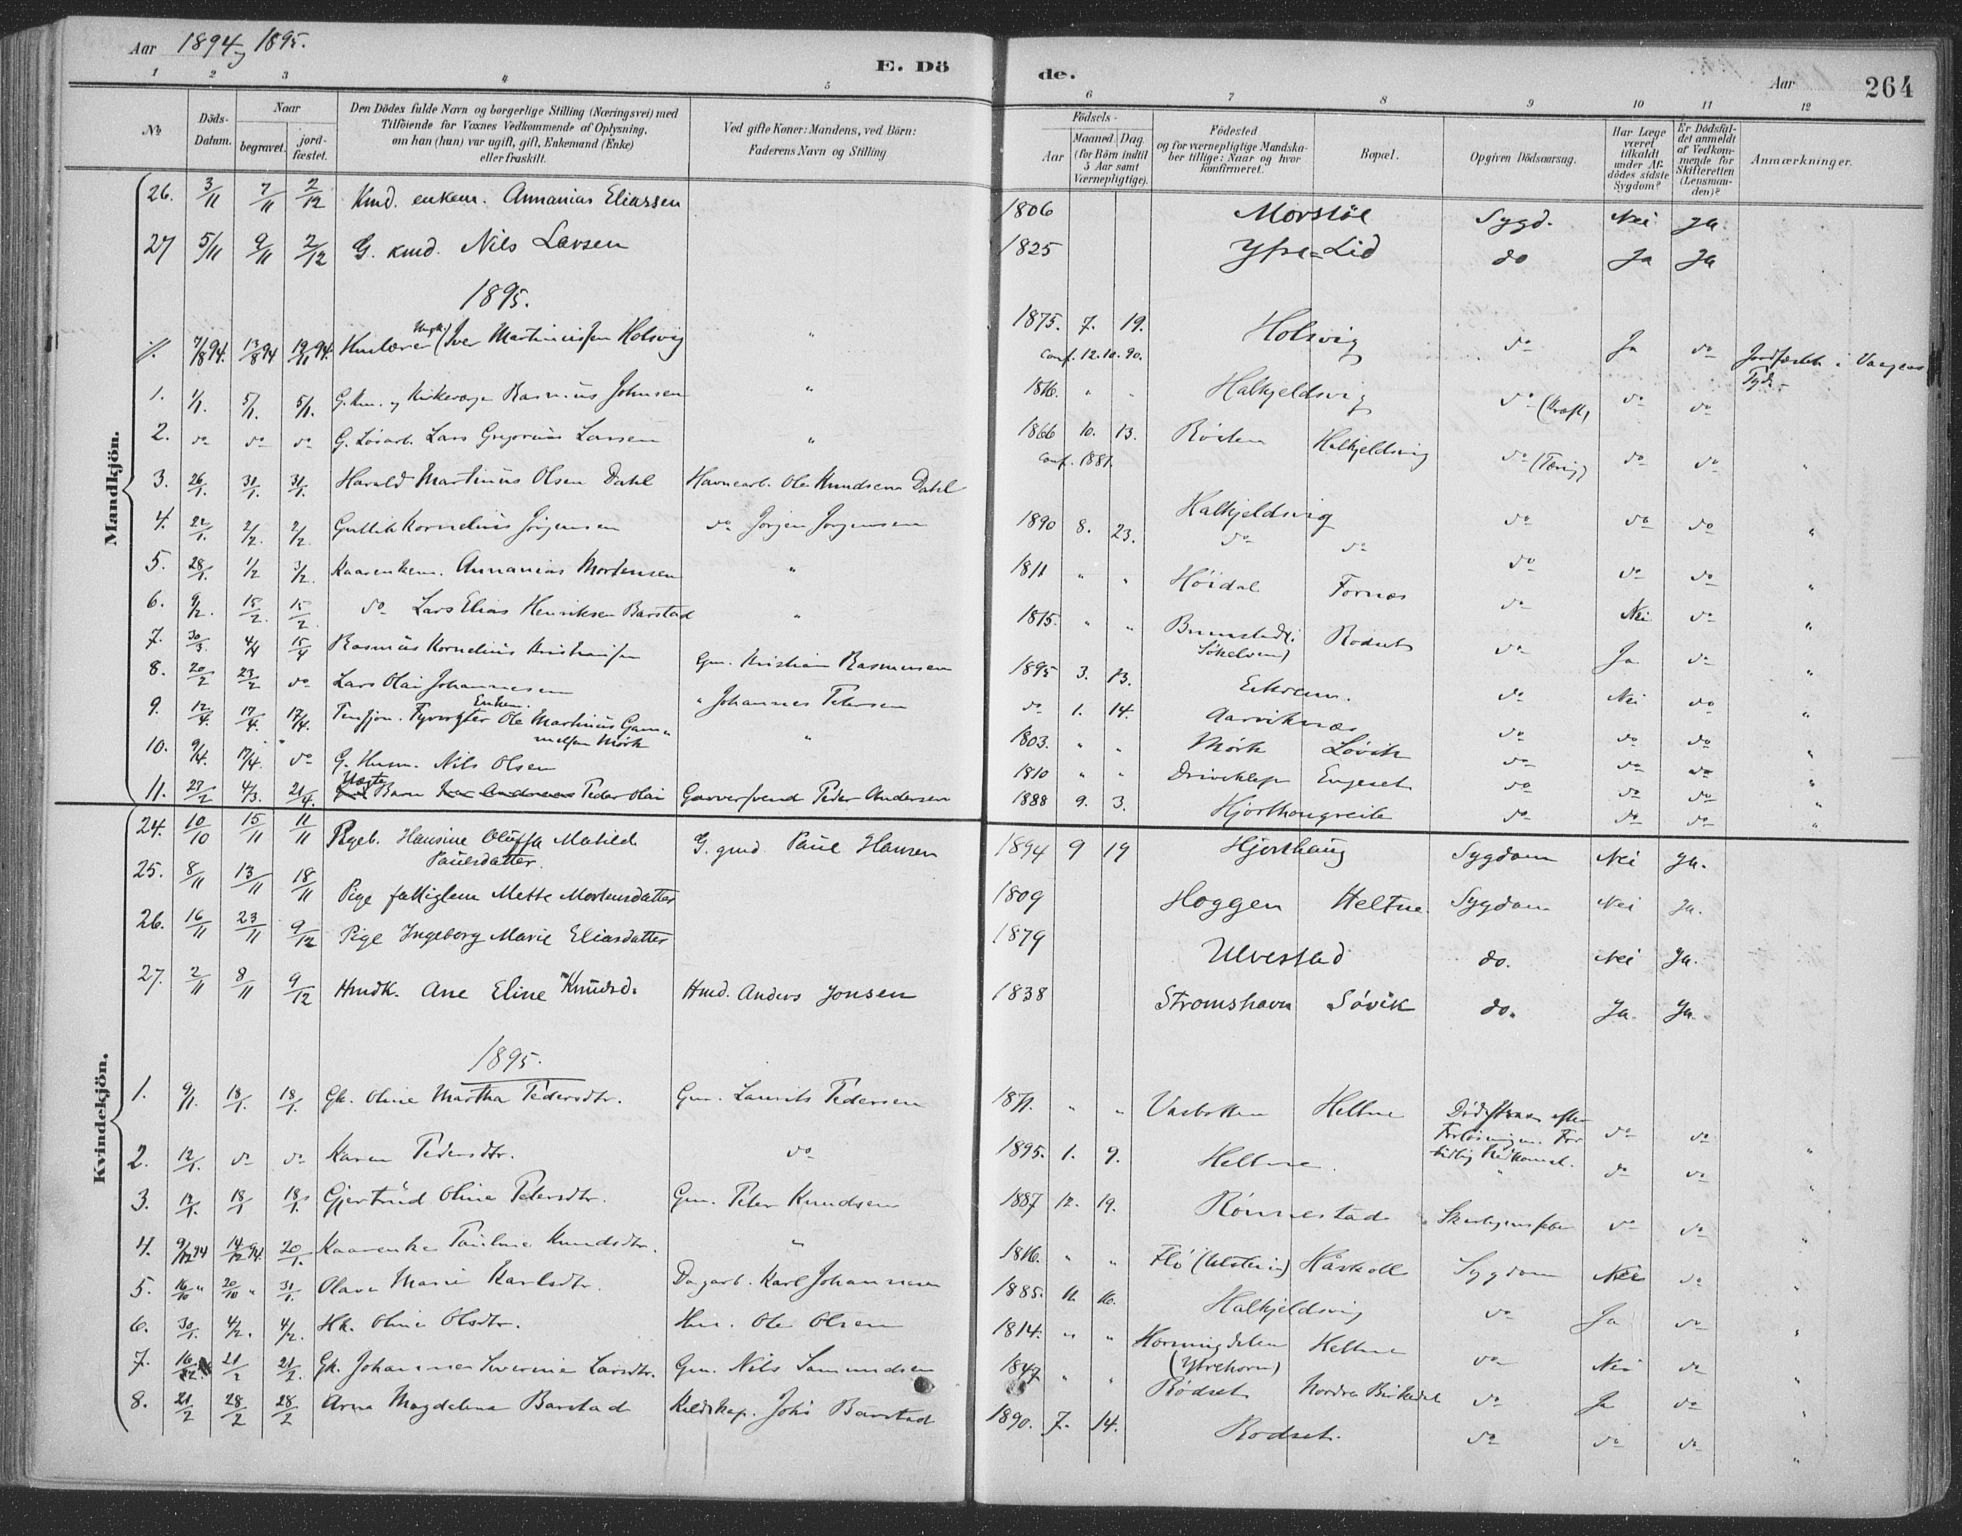 Aar 1894 og 1895.
E. Dö
de.
Aar
264
1 2 3 4 5 6 7 8 9 10 11 12
№
Döds-Datum.
Naar
begravet.
jord-fæstet.
Den Dödes fulde Navn og borgerlige Stilling (Næringsvei) med
Tilföiende for Voxnes Vedkommende af Oplysning,
om han (hun) var ugift, gift, Enkemand (Enke)
eller fraskilt.
Ved gifte Koner: Mandens, ved Börn:
Faderens Navn og Stilling
Födsels-
Aar
Maaned. Dag.
(for Börn indtil
5 Aar samt
Værnepligtige).
Födested
og for værnepligtige Mandska-
ber tillige: Naar og hvor
konfirmeret.
Bopæl.
Opgiven Dödsaarsag.
Har Læge
været
tilkaldt
under Af-
dödes sidste
Sygdom?
Er Dödsfal-
det anmeldt
af Vedkom-
mende for
Skifteretten
(Lensman-
den)?
Anmærkninger.
Mandkjön.
26. 3/11 7/11 2/12 Kmd. enkem. Annanias Eliassen 1806 Morstöl Sygd. Nei Ja.
27 5/11 9/11 2/12 G. kmd. Nils Larsen 1825 Yfre-Lid do Ja Ja
1895.
7/8 94. 13/8 94 19/11 94. Huslærer (Ungk.) Iver Martinussen Holsvig " 1875. 7. 19. Holsvig do Ja do Jordfæstet i
conf. 12.10.90.
1. 1/1. 5/1. 5/1. G. Km. og Kirkeværge Rasmus Johnsen " 1816. " " Halkjeldsvig do (Kræft) do do
2. do do do G. Løsarb. Lars Gregorius Larsen " 1866 10. 13. Røsten Halkjeldsvig do (Tæring) do do "
conf. 1881.
3. 26/1. 31/1. 31/1. Harald Martinus Olsen Dahl Havnearb. Ole Knudsen Dahl 1890 8. 23. Halkjeldsvig do do do "
4. 22/1. 2/2. 2/2. Gullik Kornelius Jörgensen do Jörgen Jörgensen do do do do do "
5. 28/1. 1/2 3/2. Kaarenkem. Annanias Mortensen " 1811 " " Høidal Fornæs do Nei do "
6. 9/2. 15/2. 15/2. do Lars Elias Henriksen Barstad " 1815. " " Rødset do Ja do "
7. 30/3 4/4 15/4 Rasmus Kornelius Kristiansen Gm. Kristian Rasmussen 1895 3. 13. Eikrem. do Nei do "
8. 20/2 23/2 do Lars Olai Johannesen " Johannes Petersen do 1. 14. Aarviknæs do do do "
9. 12/4. 17/4. 17/4. Pensjon. Fyrvogter Enkem. Ole Martinus Gam-
melsen Mørk " 1803. " " Mørk Løvik do do do "
10. 9/4. 17/4. do G. Husm. Nils Olsen 1810 " " Driveklep Engeset do do do "
11. 27/2 4/3. 21/4. Uægte Barn Peder Olai Garversvend Peder Andersen 1888 9. 3. Hjorthougreite do do do "
Kvindekjön.
24. 10/10 15/11 11/11 Pigeb. Hansine Oluffa Mathild
Paulsdatter. G. gmd. Paul Hansen 1894 9 19 Hjorthaug Sygdom Nei Ja.
25. 8/11 13/11 18/11 Pige fattiglem Mette Mortensdatter 1809 Hoggen Heltne. Sygdom Nei Ja.
26. 16/11 23/11 9/12 Pige Ingeborg Marie Eliasdatter 1879 Ulvestad do. Nei Ja.
27. 2/11 8/11 9/12 Hmdk. Ane Eline Knudsd. Hmd. Anders Jonsen 1838 Stromshavn Søvik do. Ja. Ja.
1895.
1. 9/1. 18/1. 18/1. Gk. Oline Martha Pedersdtr. Gm. Laurits Pedersen 1871. " " Vasbotten Heltne efter Forløsningen. For do do "
2. 12/1. do do Karen Pedersdtr. do 1895. 1. 9. Heltne. tidlig Nedkomst. do do "
3. 12/1. 18/1 18/1. Gjertrud Oline Petersdtr. Gm. Peter Knudsen 1887 12. 19. Rønnestad Skarlagensfeber do do "
4. 9/12 94 14/12 94. 20/1. Kaarenke Pauline Knudsdtr. " 1816. " " Flø (Ulstein) Haskoll Sygdom Nei do "
5. 16/10 " 20/10 " 31/1. Olava Marie Karlsdtr. Dagarb. Karl Johannesen 1885. 11. 16. Halkjeldsvig do Ja do "
6. 30/1. 4/2. 4/2. Hk. Oline Olsdtr. Hm. Ole Olsen 1814. " " Hornindalen
(Ytrehorn) Heltne do Nei do "
7. 16/12. 21/2 21/2. Gk. Johanne Severine Larsdtr. Gm. Nils Samundsen 1847 " " Rødset Nordre Birkedal do Ja do "
8. 21/2 28/2 28/2 Anna Magdalena Barstad Keldskap. Johs Barstad 1890. 7. 14. Rødset. do do do "